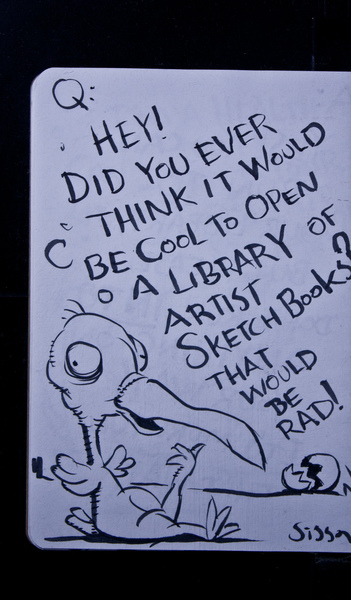 Q:
HEY!
DID YOU EVER
THINK IT WOULD
BE COOL TO OPEN
A LIBRARY OF
ARTIST
SKETCH BOOKS?
THAT
WOULD
BE
RAD!